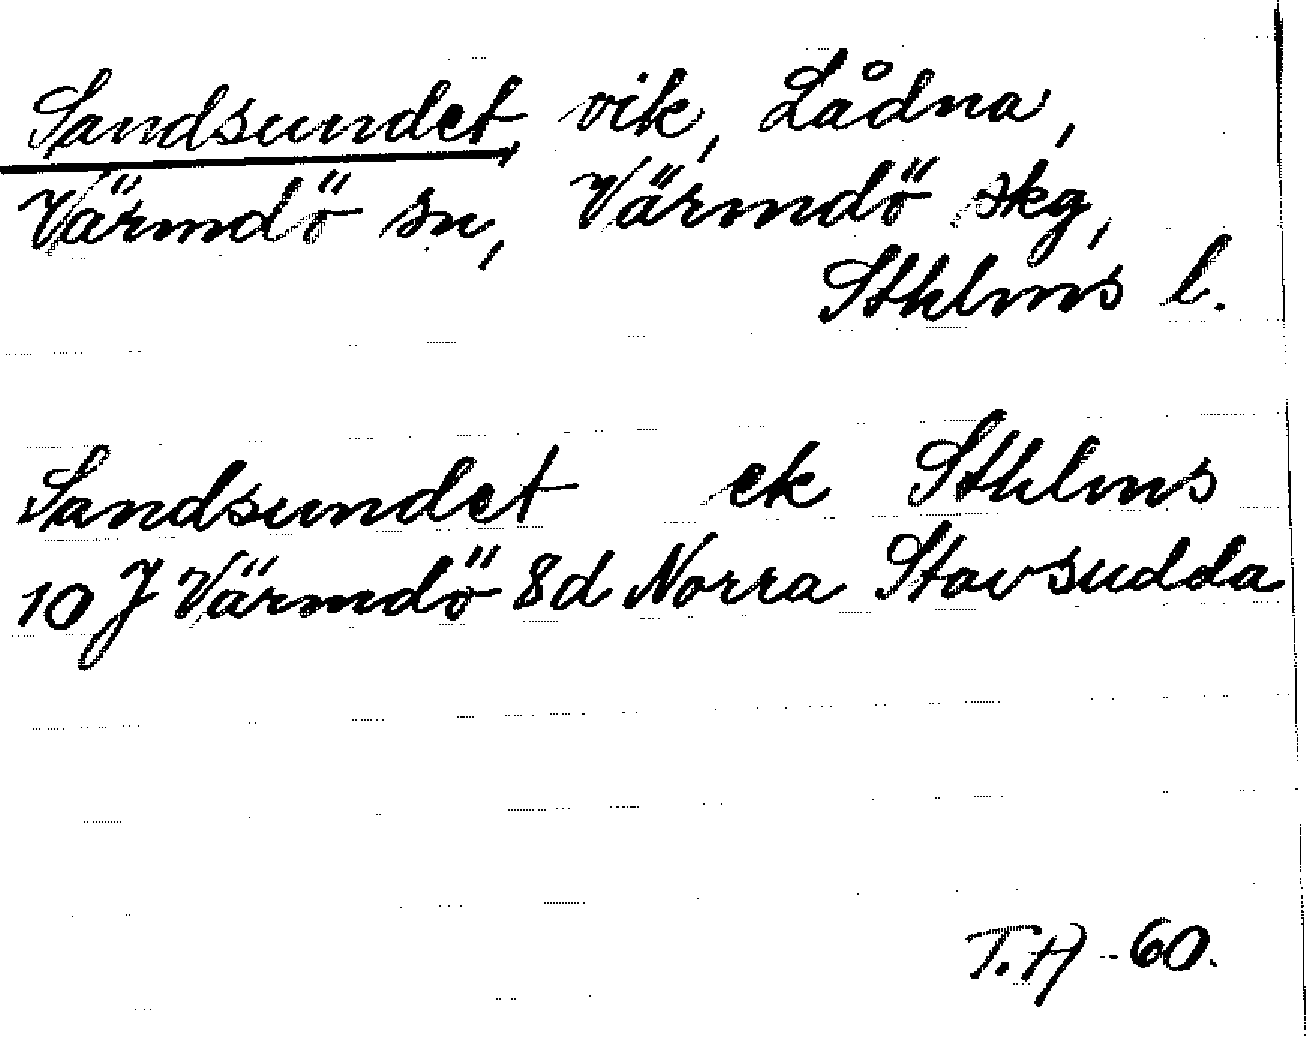 Sandsundet, vik, Lådna,
Värmdö sn, Värmdö skg,
Sthlms l.
Sandsundet ek Sthlms
10 J Värmdö 8d Norra Stavsudda
T.A -60.